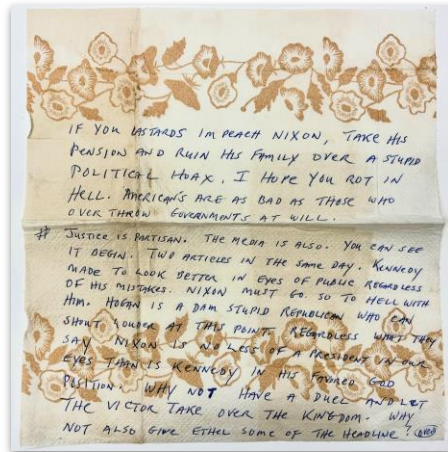 IF YOU BASTARDS IMPEACH NIXON, TAKE HIS
PENSION AND RUIN HIS FAMILY OVER A STUPID
POLITICAL HOAX. I HOPE YOU ROT IN
HELL. AMERICAN'S ARE AS BAD AS THOSE WHO
OVER THROW GOVERNMENTS AT WILL.
# JUSTICE IS PARTISAN. THE MEDIA IS ALSO. YOU CAN SEE
IT BEGIN. TWO ARTICLES IN THE SAME DAY. KENNEDY
MADE TO LOOK BETTER IN EYES OF PUBLIC REGARDLESS
OF HIS MISTAKES. NIXON MUST GO. SO TO HELL WITH
HIM. HOGAN IS A DAM STUPID REPUBLICAN WHO CAN
SHOUT LOUDER AT THIS POINT. REGARDLESS WHAT THEY
SAY NIXON IS NO LESS OF A PRESIDENT IN OUR
EYES THAN IS KENNEDY IN HIS FAVORED GOD
POSITION. WHY NOT HAVE A DUEL AND LET
THE VICTOR TAKE OVER THE KINGDOM. WHY
NOT ALSO GIVE ETHEL SOME OF THE HEADLINE? OVER